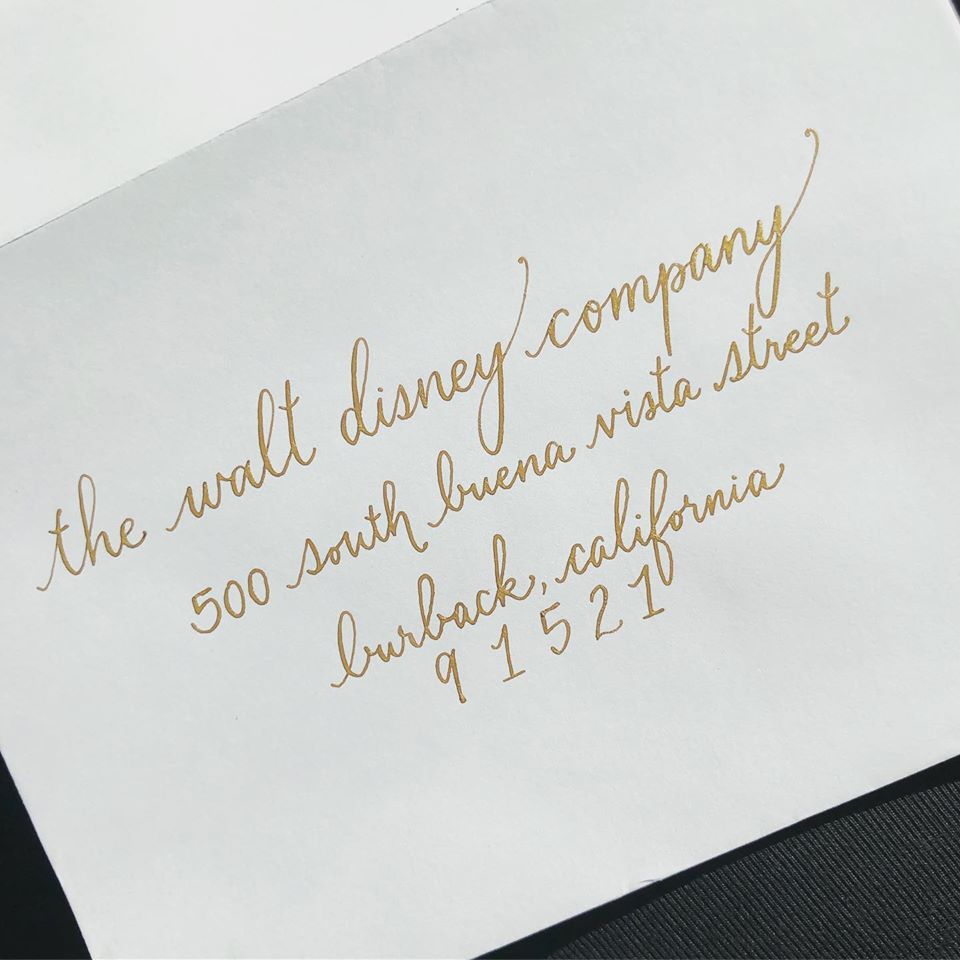 the walt disney company
500 south buena vista street
burback, california
91521